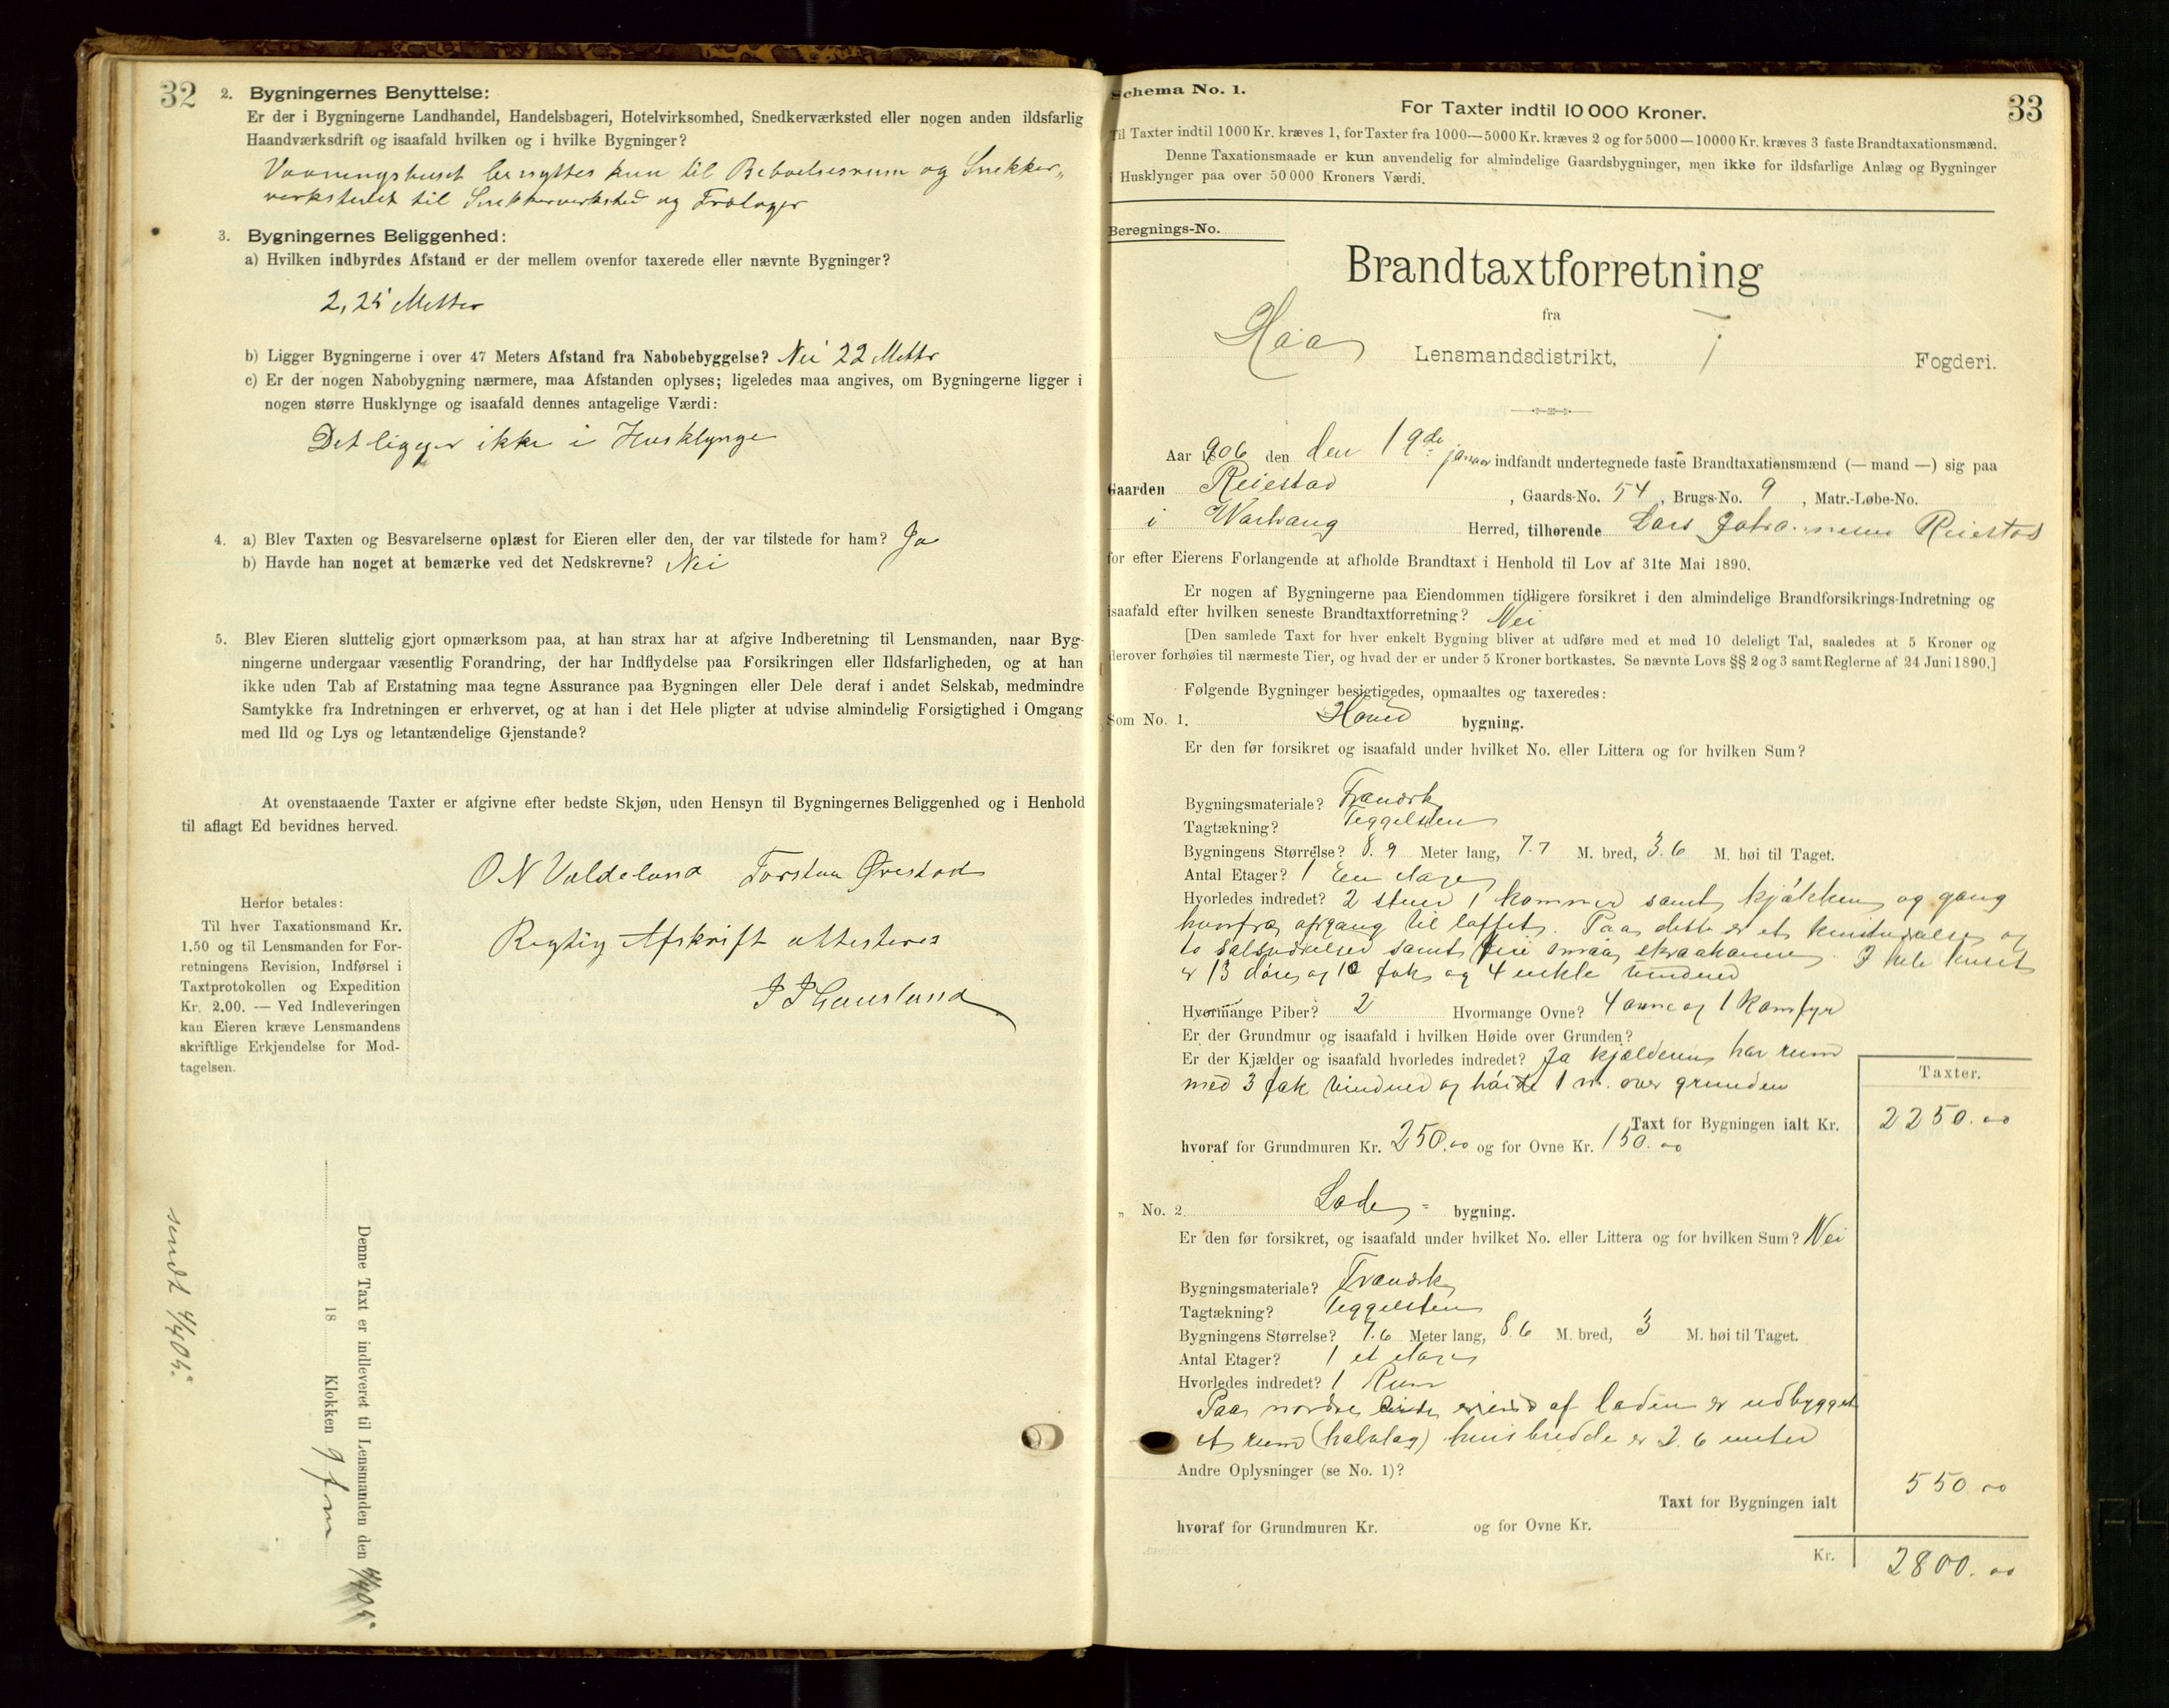 32
2. Bygningernes Benyttelse:
Er der i Bygningerne Landhandel, Handelsbageri, Hotelvirksomhed, Snedkerværksted eller nogen anden ildsfarlig
Haandværksdrift og isaafald hvilken og i hvilke Bygninger?
Vaaningshuset benyttes kun til Beboelsesrum og Snekker„
verkstedet til Snekkerverksted og Trælager
3. Bygningernes Beliggenhed:
a) Hvilken indbyrdes Afstand er der mellem ovenfor taxerede eller nævnte Bygninger?
2,25 Metter
b) Ligger Bygningerne i over 47 Meters Afstand fra Nabobebyggelse? Nei 22 Mettr
c) Er der nogen Nabobygning nærmere, maa Afstanden oplyses; ligeledes maa angives, om Bygningerne ligger i
nogen større Husklynge og isaafald dennes antagelige Værdi:
Det ligger ikke i Husklynge
4. a) Blev Taxten og Besvarelserne oplæst for Eieren eller den, der var tilstede for ham? Ja
b) Havde han noget at bemærke ved det Nedskrevne? Nei
5. Blev Eieren sluttelig gjort opmærksom paa, at han strax har at afgive Indberetning til Lensmanden, naar Byg-
ningerne undergaar væsentlig Forandring, der har Indflydelse paa Forsikringen eller Ildsfarligheden, og at han
ikke uden Tab af Erstatning maa tegne Assurance paa Bygningen eller Dele deraf i andet Selskab, medmindre
Samtykke fra Indretningen er erhvervet, og at han i det Hele pligter at udvise almindelig Forsigtighed i Omgang
med Ild og Lys og letantændelige Gjenstande?
At ovenstaaende Taxter er afgivne efter bedste Skjøn, uden Hensyn til Bygningernes Beliggenhed og i Henhold
til aflagt Ed bevidnes herved.
O N Valdeland Torsten Ørestad
Rigtig Afskrift attesteres
Herfor betales:
Til hver Taxationsmand Kr.
1.50 og til Lensmanden for For-
retningens Revision, Indførsel i
Taxtprotokollen og Expedition
Kr. 2.00. — Ved Indleveringen
kan Eieren kræve Lensmandens
skriftlige Erkjendelse for Mod-
tagelsen.
Denne Taxt er indleveret til Lensmanden den 4/4 05
18 Klokken 9 fm
sendt 4/4 05.
33
Schema No. 1.
For Taxter indtil 10 000 Kroner.
Til Taxter indtil 1000 Kr. kræves 1, for Taxter fra 1000—5000 Kr. kræves 2 og for 5000—10000 Kr. kræves 3 faste Brandtaxationsmænd.
Denne Taxationsmaade er kun anvendelig for almindelige Gaardsbygninger, men ikke for ildsfarlige Anlæg og Bygninger
i Husklynger paa over 50 000 Kroners Værdi.
Beregnings-No.
Brandtaxtforretning
fra
Haa Lensmandsdistrikt, Fogderi.
Aar 1906 den den 19de januar indfandt undertegnede faste Brandtaxationsmænd (— mand —) sig paa
Gaarden Reiestad, Gaards-No. 54, Brugs-No. 9, Matr.-Løbe-No.
i Varhaug Herred, tilhørende Lars Johannesen Reiestad
for efter Eierens Forlangende at afholde Brandtaxt i Henhold til Lov af 31te Mai 1890.
Er nogen af Bygningerne paa Eiendommen tidligere forsikret i den almindelige Brandforsikrings-Indretning og
isaafald efter hvilken seneste Brandtaxtforretning? Nei
[Den samlede Taxt for hver enkelt Bygning bliver at udføre med et med 10 deleligt Tal, saaledes at 5 Kroner og
derover forhøies til nærmeste Tier, og hvad der er under 5 Kroner bortkastes. Se nævnte Lovs §§ 2 og 3 samt Reglerne af 24 Juni 1890.]
Følgende Bygninger besigtigedes, opmaaltes og taxeredes:
Som No. 1. Hoved bygning.
Er den før forsikret og isaafald under hvilket No. eller Littera og for hvilken Sum?
Bygningsmateriale? Træverk
Tagtækning? Teggelsten
Bygningens Størrelse? 8.9 Meter lang, 7.7 M. bred, 3.6 M. høi til Taget.
Antal Etager? 1 Een etage
Hvorledes indredet? 2 stuer 1 kammer samt kjøkken og gang
hvorfra opgang til loftet. Paa dette er et og
to samt fire smaa I hele huset
er 13 døre og 10 fak og 4 enkle vinduer
Hvormange Piber? 2 Hvormange Ovne? 4 ovne og 1 Komfyr
Er der Grundmur og isaafald i hvilken Høide over Grunden?
Er der Kjælder og isaafald hvorledes indredet? Ja kjælderen har rum
med 3 fak vinduer og høide 1 m. over grunden
Taxter.
Taxt for Bygningen ialt Kr. 2250.00
hvoraf for Grundmuren Kr. 250.00 og for Ovne Kr. 150.00
„ No. 2 Lade- bygning.
Er den før forsikret, og isaafald under hvilket No. eller Littera og for hvilken Sum? Nei
Bygningsmateriale? Træverk
Tagtækning? Teggelsten
Bygningens Størrelse? 7.6 Meter lang, 8.6 M. bred, 3 M. høi til Taget.
Antal Etager? 1 et etage
Hvorledes indredet? 1 Rum
Paa nordre af laden er udbygget
et rum (halvtag) hvis bredde er 2.6 meter
Andre Oplysninger (se No. 1)?
Taxt for Bygningen ialt 550.00
hvoraf for Grundmuren Kr. og for Ovne Kr.
Kr. 2800.00